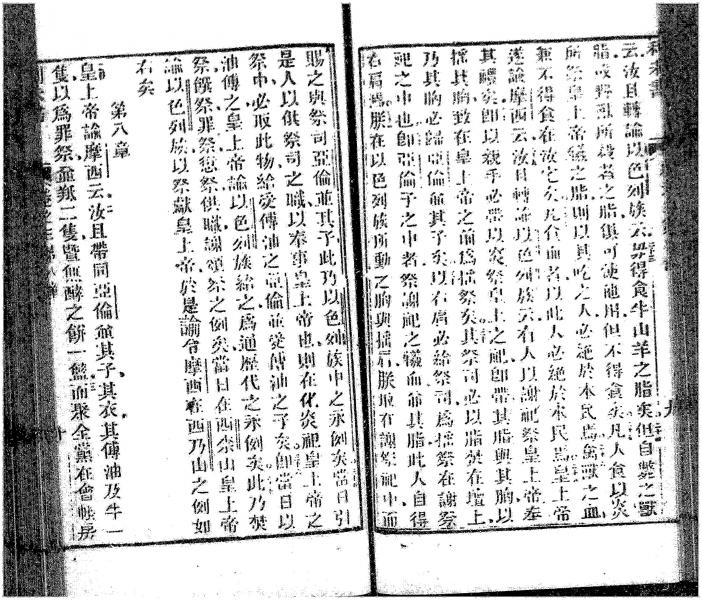 云汝且轉諭以色列族云毋得食牛山羊之脂矣但自斃之獸
脂或野獸所殺者之脂俱可使他用但不得食矣凡人食以炎
所祭皇上帝犧之脂則以其吃之人必絕於本民焉禽獸之血
兼不得食在汝宅矣凡食血者以此人必絕於本民焉皇上帝
遂諭摩西云汝且轉諭以色列族云有人以謝祀祭皇上帝奉
其禮矣卽以親手必帶以炎祭皇上之祀卽帶其脂與其胸以
搖其胸致在皇上帝之前爲搖祭矣其祭司必以脂焚在壇上
乃其胸必歸亞倫並其子矣以右肩必給祭司爲搖祭在謝祭
祀之中也卽亞倫子之中者祭謝祀之犧血並其脂此人自得
右肩焉朕在以色列族所動之胸與搖肩朕取在謝祭祀中而
賜之與祭司亞倫並其子此乃以色列族中之永例矣當日引
是人以供祭司之職以奉事皇上帝也則在化炎祀皇上帝之
祭中必取此物給受傅油之亞倫並受傅油之子矣卽當日以
油傅之皇上帝諭以色列族給之爲通歷代之永例矣此乃焚
祭饌祭罪祭愆祭供職謝頌祭之例矣當日在西奈山皇上帝
諭以色列族以祭獻皇上帝於是諭令摩西在西乃山之例如
右矣
第八章
皇上帝諭摩西云汝且帶同亞倫並其子其衣其傅油及牛一
隻以爲罪祭並羝二隻曁無酵之餅一籃而聚全黨在會帳房